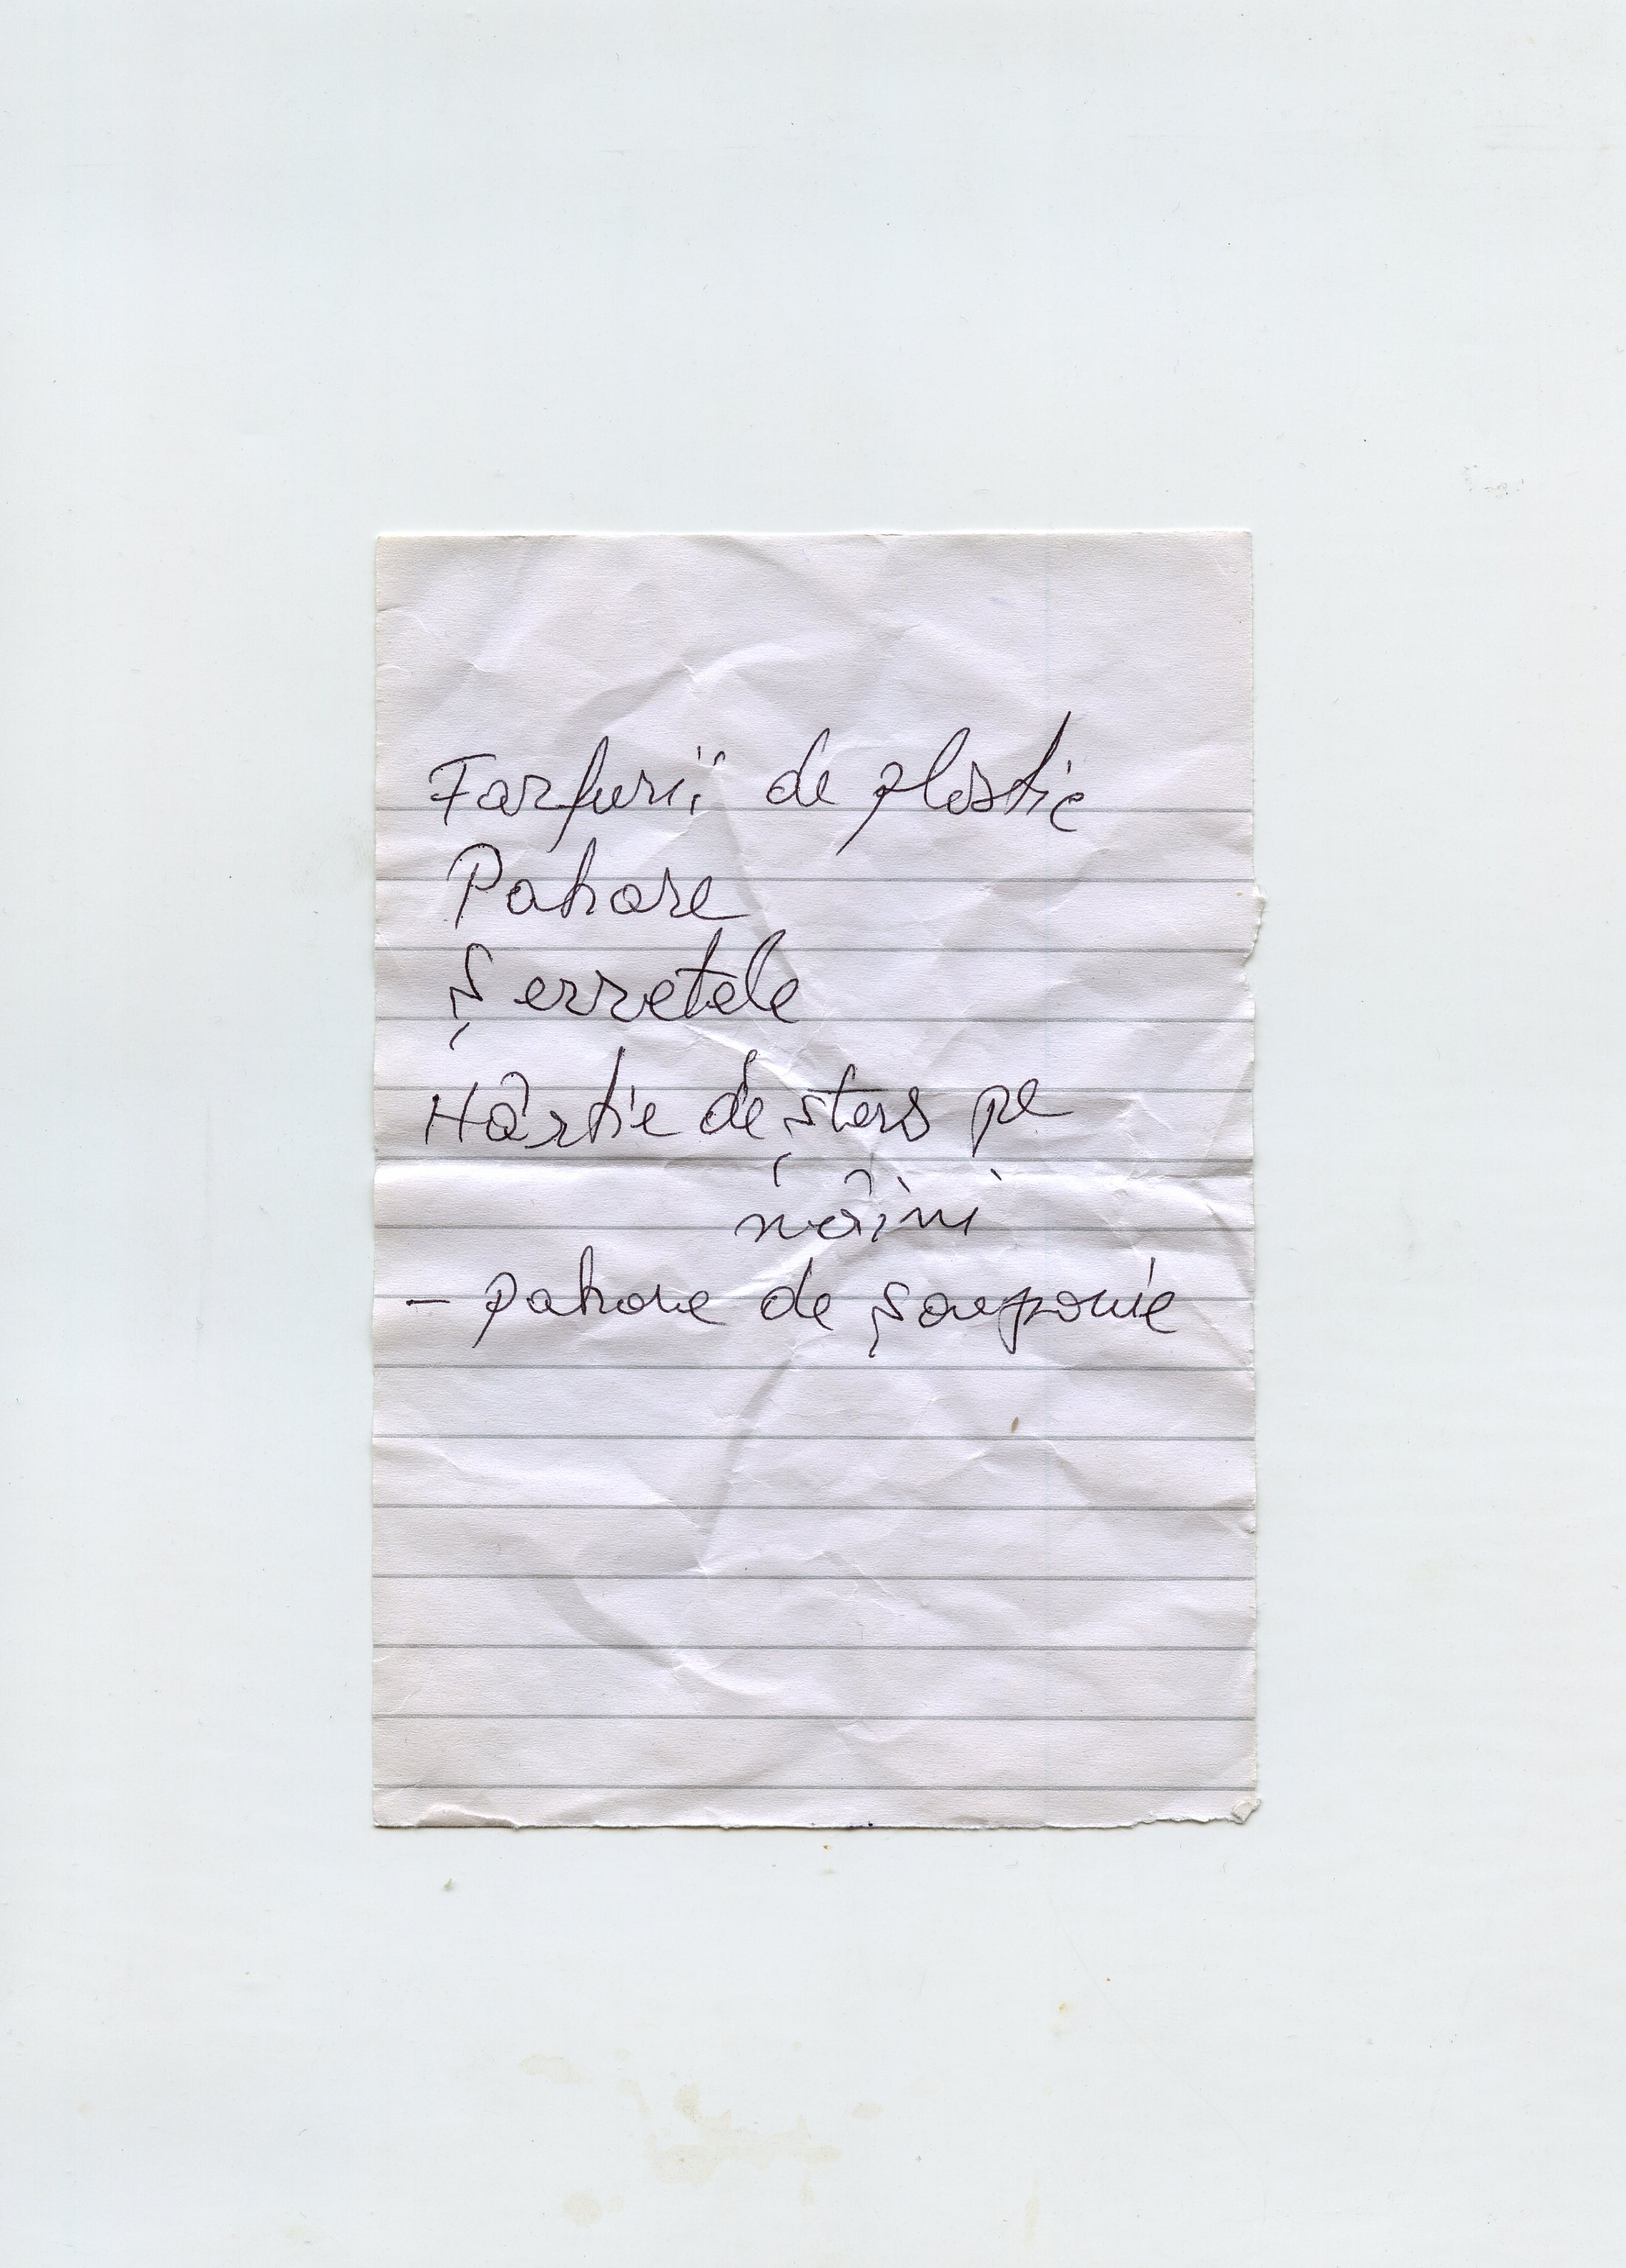 Farfurii de plastic
Pahare
Șervetele
Hârtie de șters pe
mâini
- pahare de șampanie